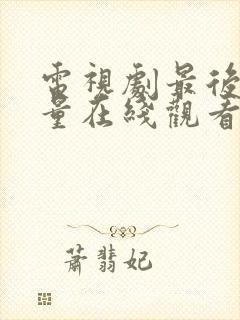 電視劇最後
量在綫觀看
蕭翡妃